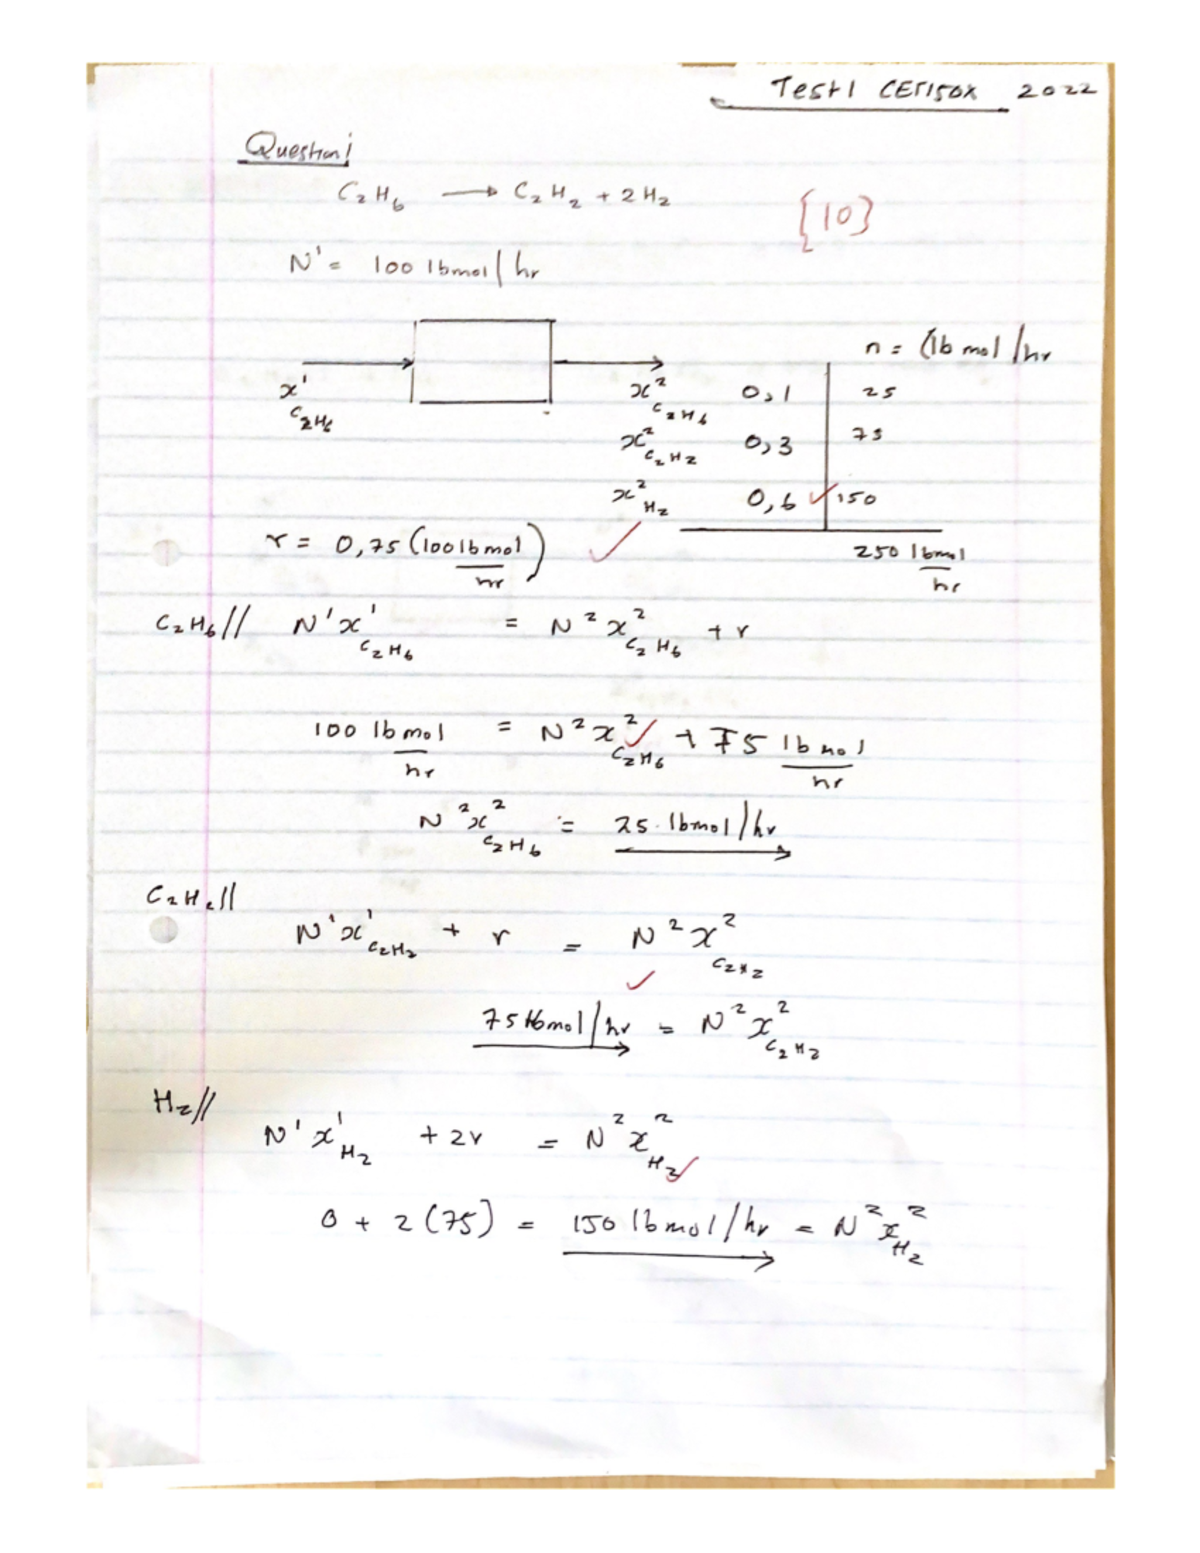 Test 1 CET150X 2022
Question 1
C₂H₆ → C₂H₂ + 2H₂
{10}
N¹ = 100 lbmol/hr
n = (lb mol/hr
x¹C₂H₆
x²C₂H₆ 0,1 25
x²C₂H₂ 0,3 75
x²H₂ 0,6 ✓ 150
r = 0,75 (100 lbmol/hr) ✓
250 lbmol/hr
C₂H₆// N¹x¹C₂H₆ = N²x²C₂H₆ + r
100 lb mol/hr = N²x²C₂H₆ ✓ + 75 lbmol/hr
N²x²C₂H₆ = 25 lbmol/hr
C₂H₂//
N¹x¹C₂H₂ + r = N²x²C₂H₂
✓
75 lbmol/hr = N²x²C₂H₂
H₂//
N¹x¹H₂ + 2r = N²x²H₂ ✓
0 + 2(75) = 150 lbmol/hr = N²x²H₂